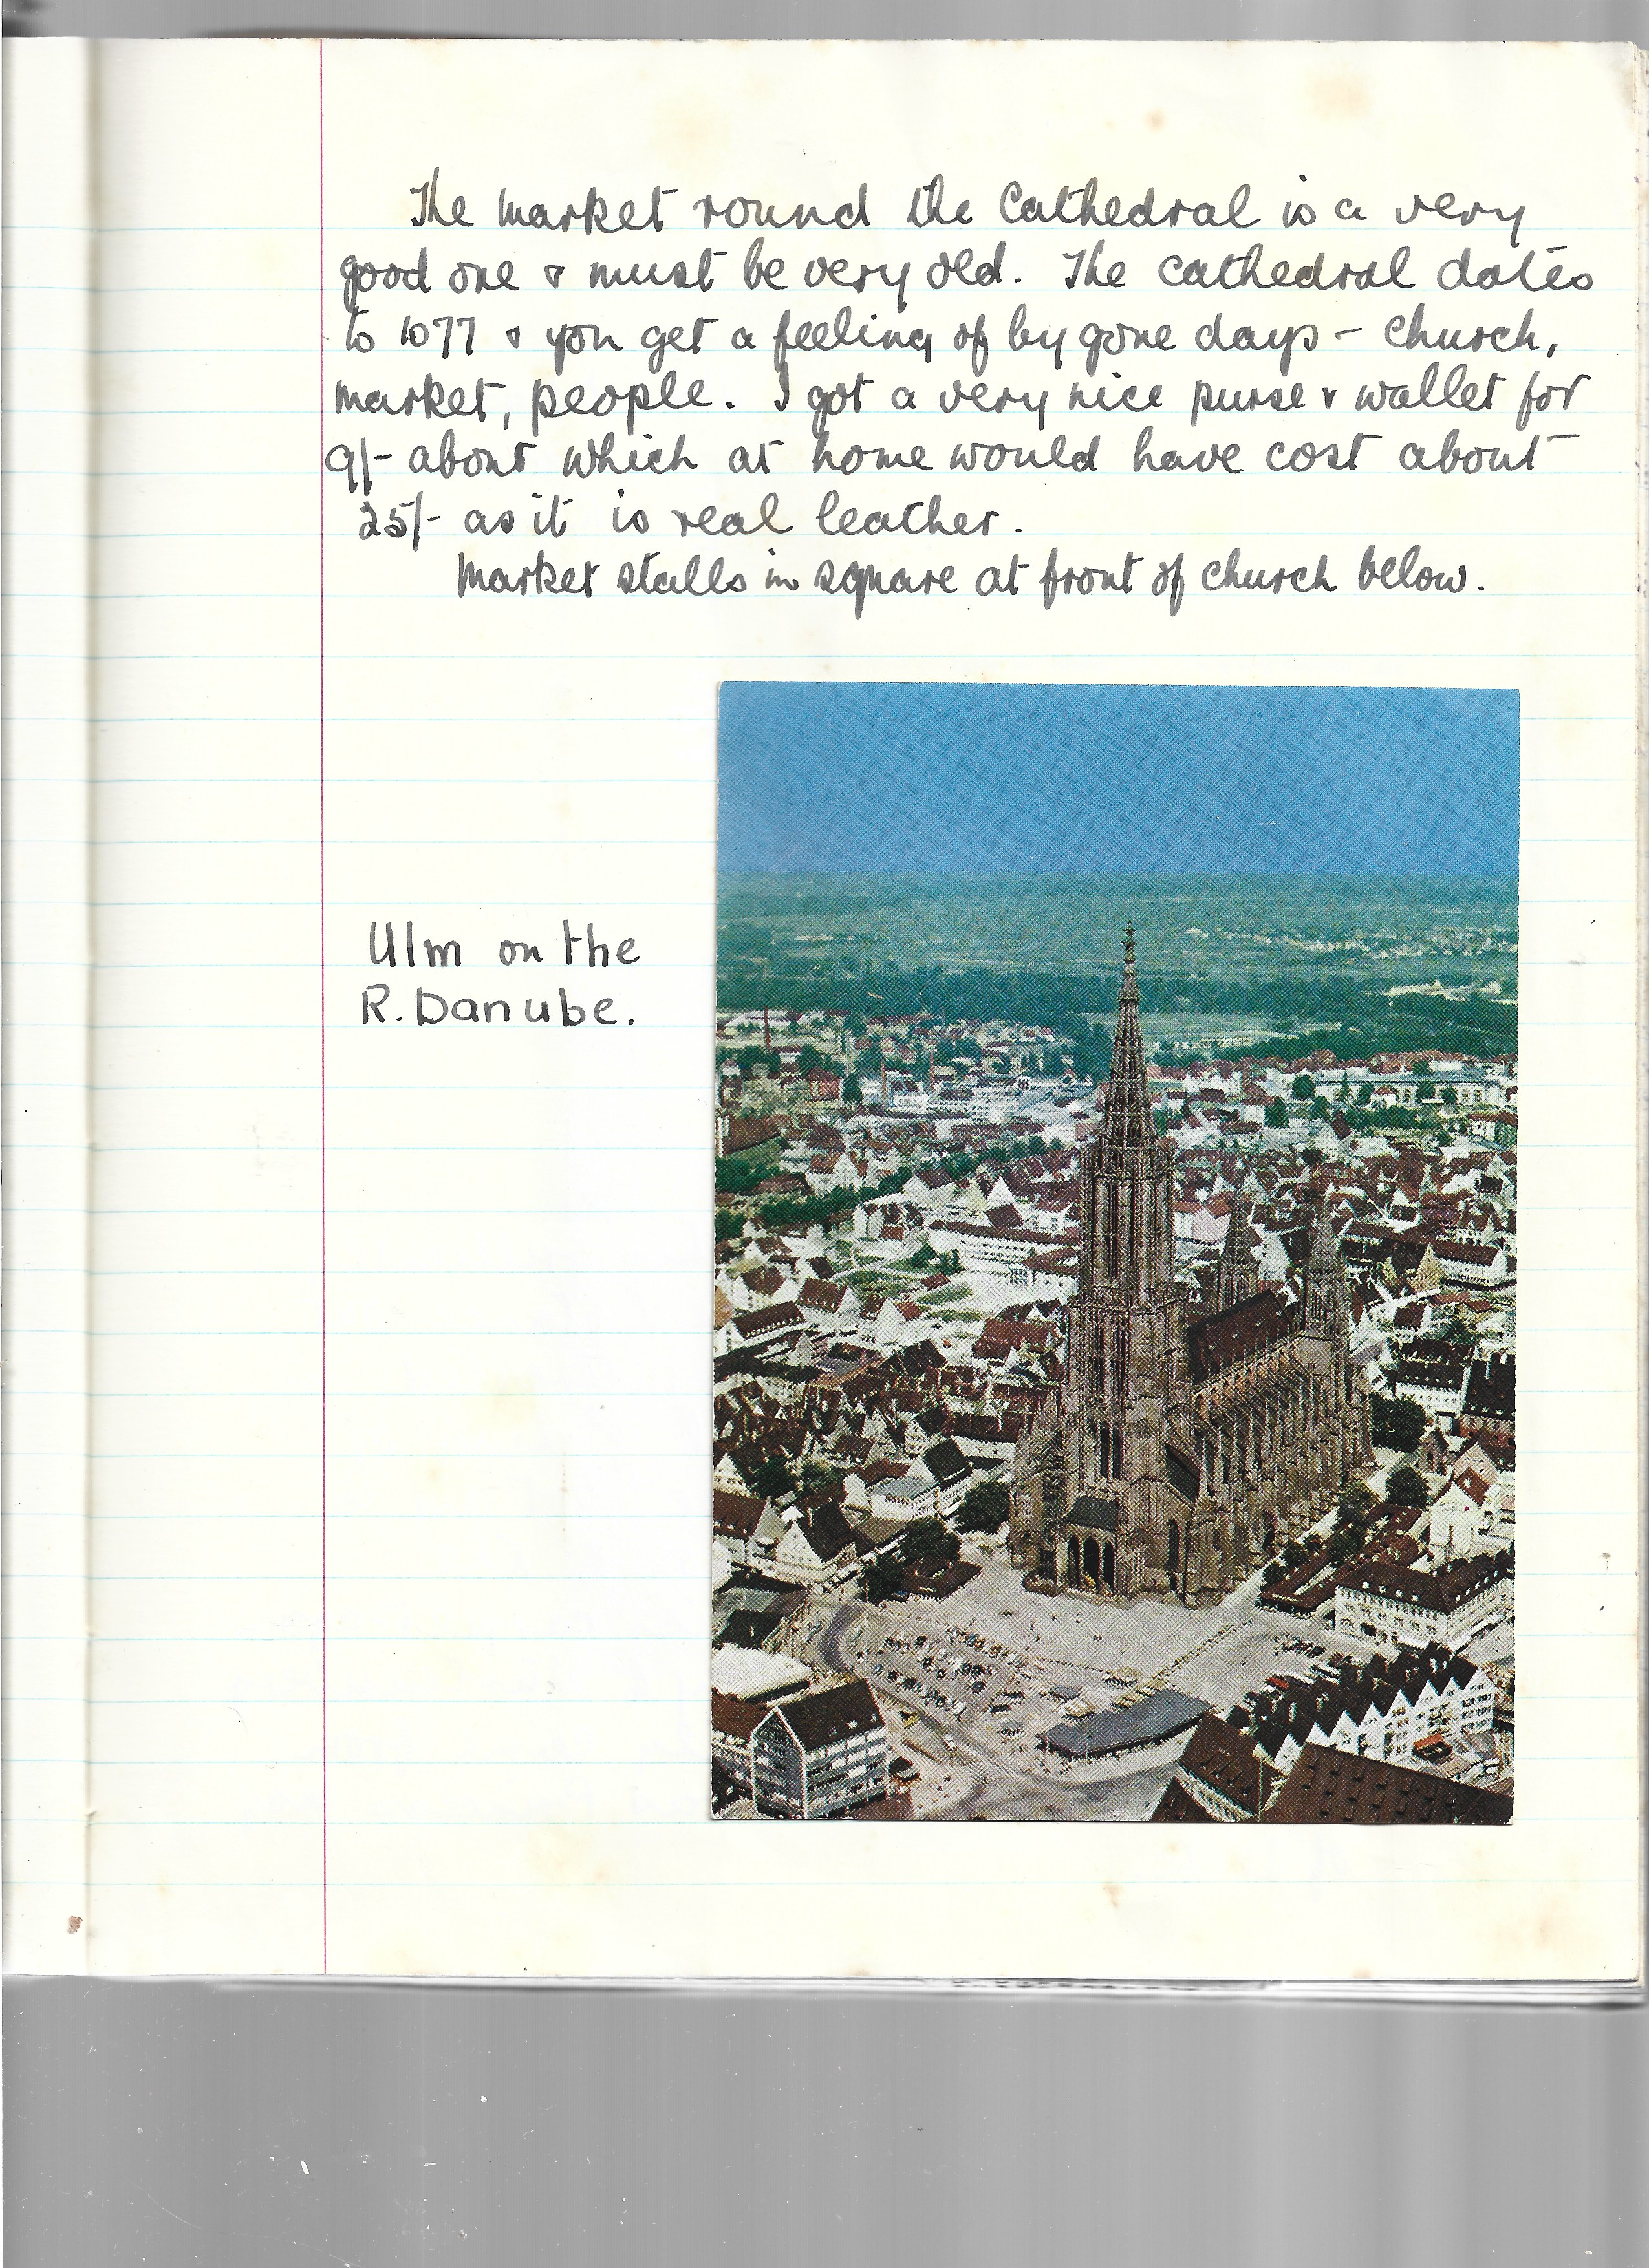 The market round the Cathedral is a very
good one & must be very old. The cathedral dates
to 1077 & you get a feeling of by gone days - church,
market, people. I got a very nice purse & wallet for
9/- about which at home would have cost about
25/- as it is real leather.
Market stalls in square at front of church below.
Ulm on the
R. Danube.